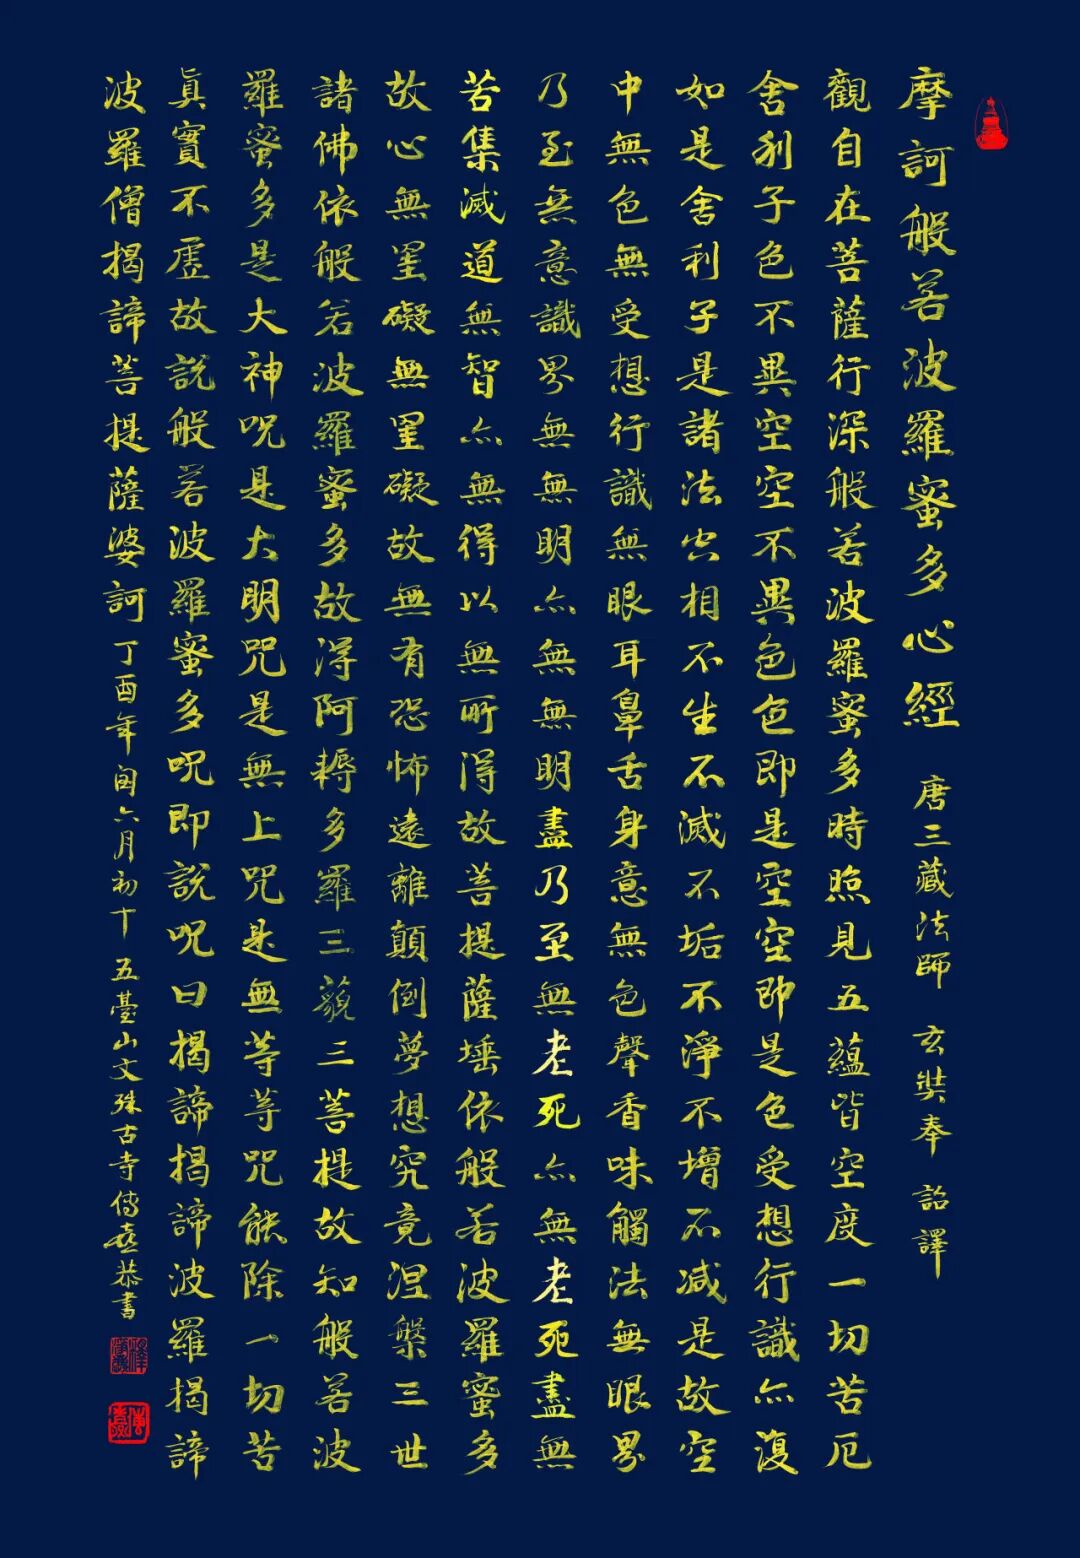 摩訶般若波羅蜜多心經 唐三藏法師 玄奘奉 詔譯
觀自在菩薩行深般若波羅蜜多時照見五蘊皆空度一切苦厄
舍利子色不異空空不異色色即是空空即是色受想行識亦復
如是舍利子是諸法空相不生不滅不垢不淨不增不减是故空
中無色無受想行識無眼耳鼻舌身意無色聲香味觸法無眼界
乃至無意識界無無明亦無無明盡乃至無老死亦無老死盡無
苦集滅道無智亦無得以無所得故菩提薩埵依般若波羅蜜多
故心無罣礙無罣礙故無有恐怖遠離顛倒夢想究竟涅槃三世
諸佛依般若波羅蜜多故得阿耨多羅三藐三菩提故知般若波
羅蜜多是大神呪是大明咒是無上咒是無等等咒能除一切苦
眞實不虛故說般若波羅蜜多呪即說呪曰揭諦揭諦波羅揭諦
波羅僧揭諦菩提薩婆訶 丁酉年閏六月初十 五臺山文殊古寺傳喜恭書